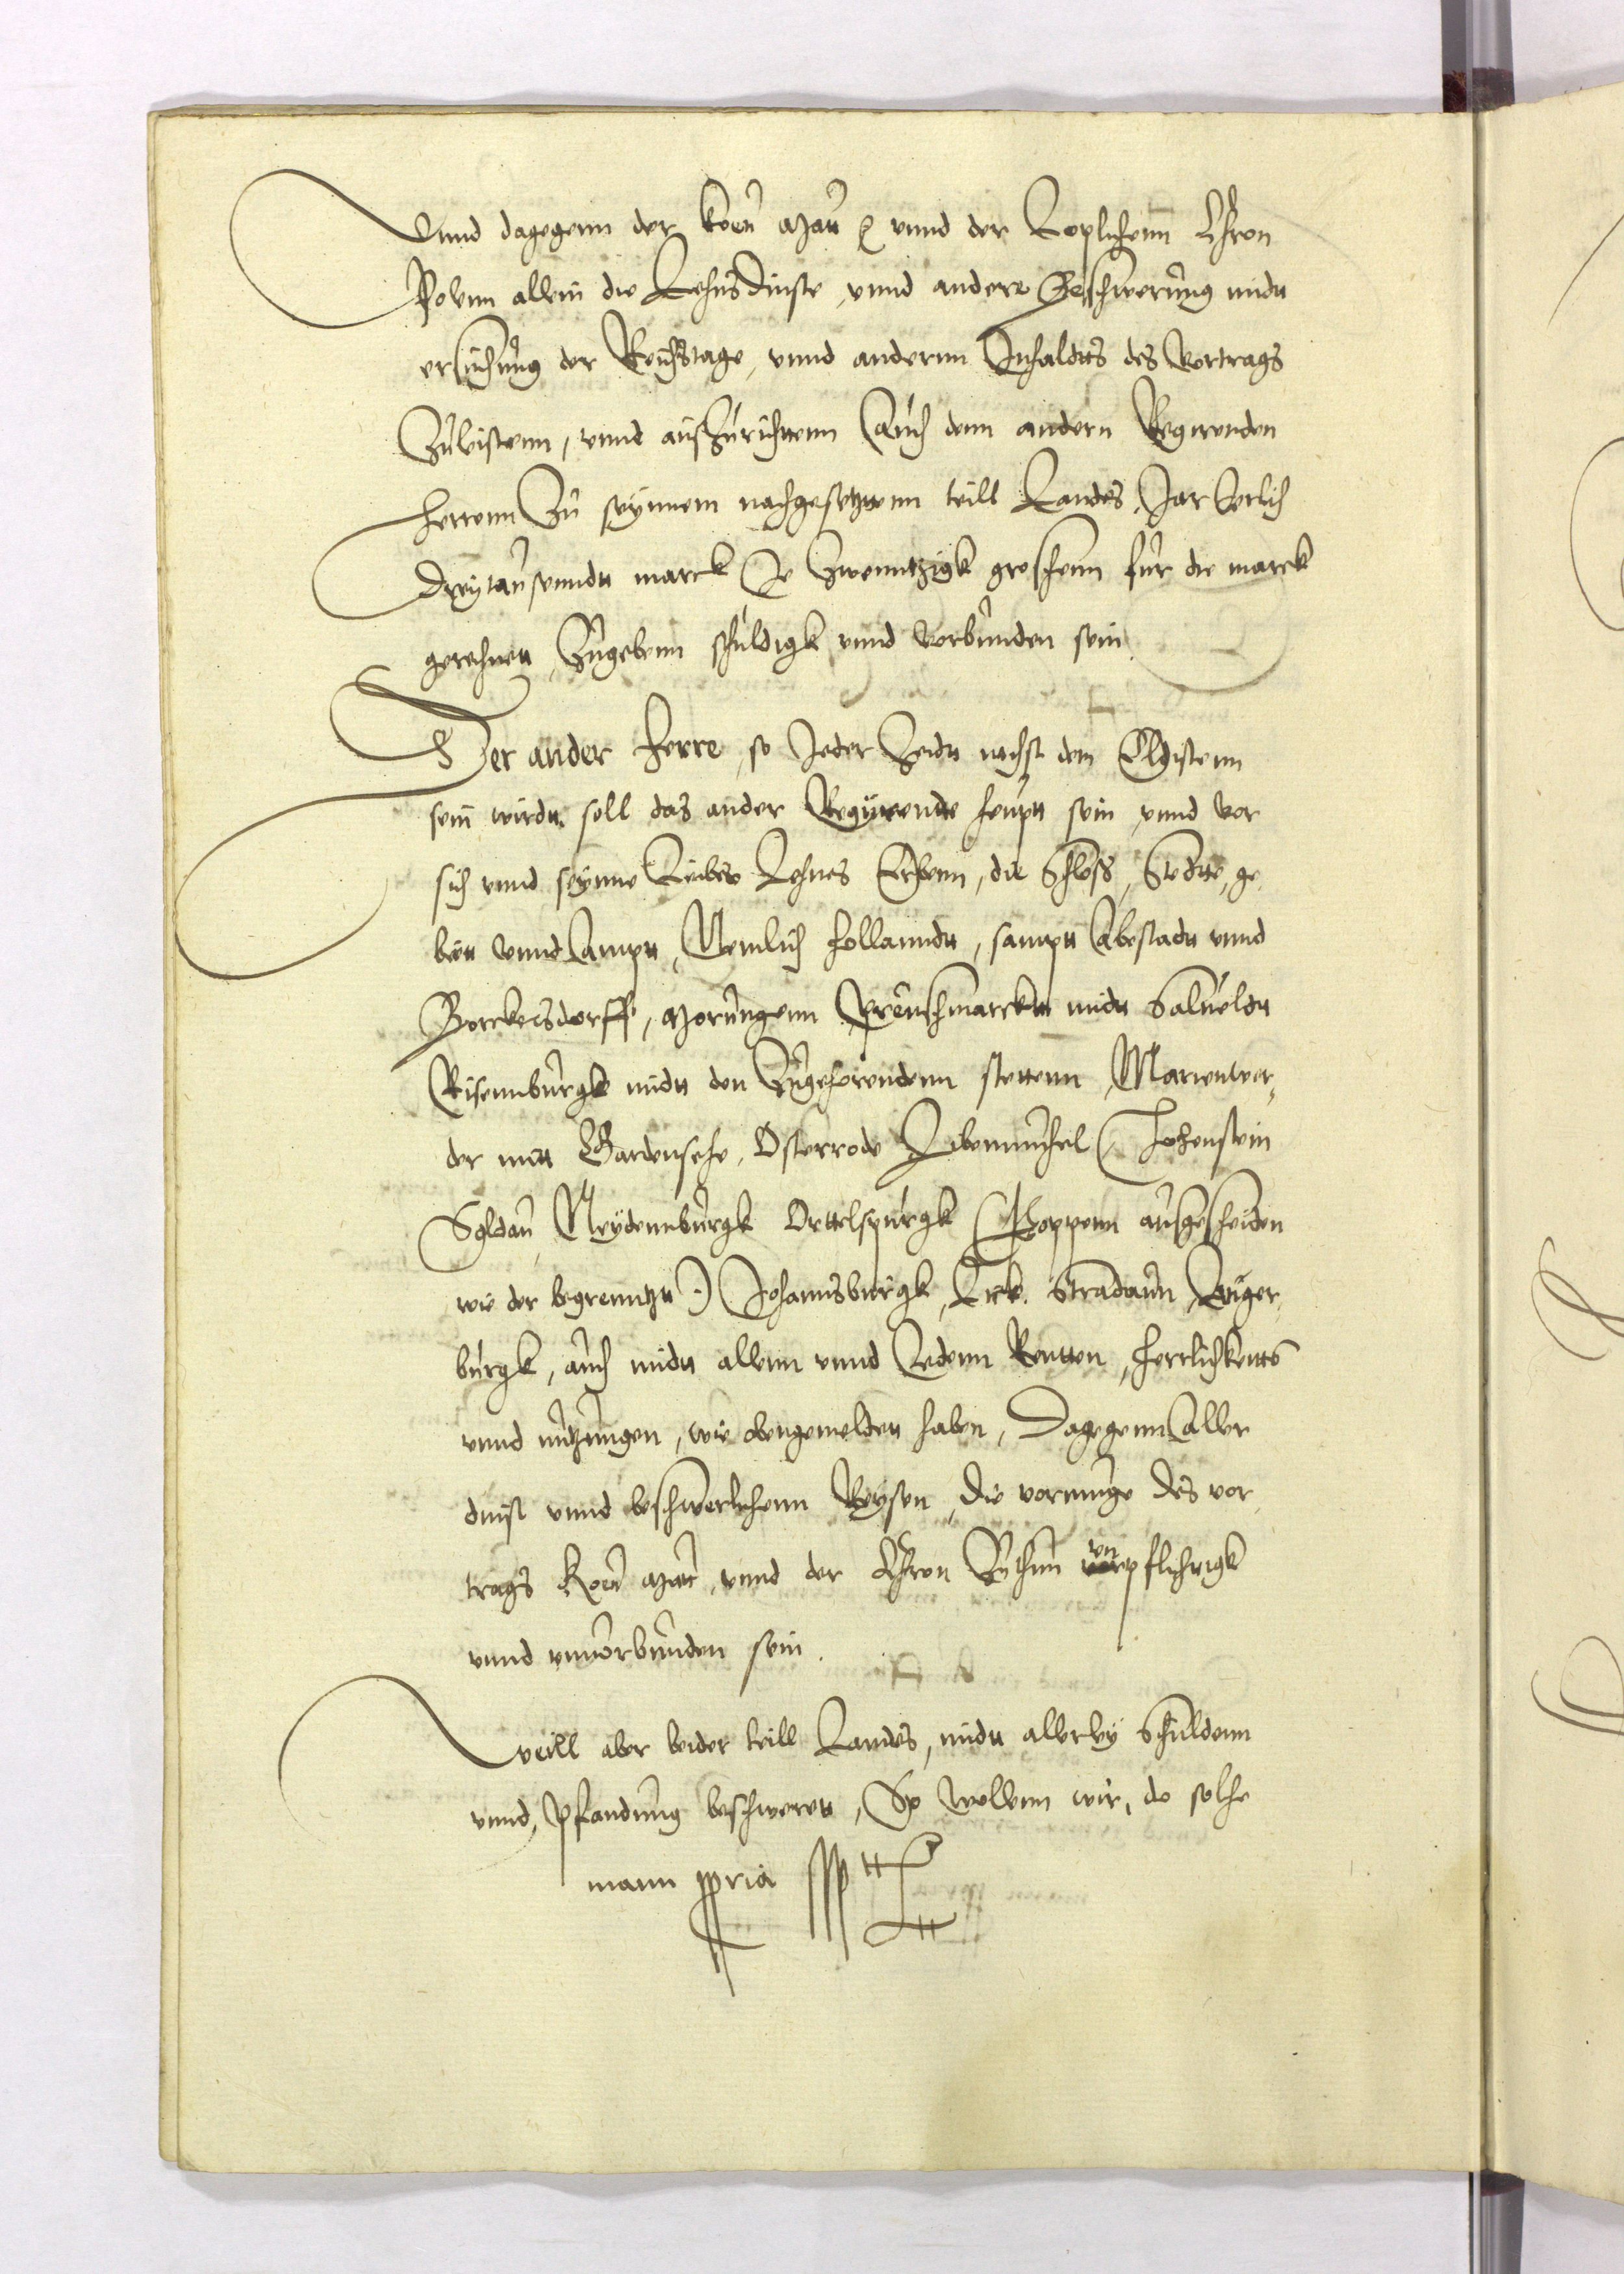 Vnnd dagegenn der koen Mau vnnd der Loplichenn Chron
Polenn allein die Lehnsdinste, vnnd andere Beschwerung midt
ersuchung der Reichstage, vnnd anderm Inhaldts des Vortrags
Zuleistenn, vnnd auszurichtenn Auch dem andern Regirenden
herrenn Zu seynnem nachgesetzttenn teill Landes, Jar Jerlich
Dreytausenndt marck Je Zwenntzigk groschenn fur die marck
gerechnett, Zugebenn schuldigk vnnd Vorbunden sein
Der ander Herre, so Jeder Zeidt nechst dem Eldistenn
sein wirdt, soll das ander Regirende heupt sein, vnnd vor
sich vnnd seynne Leibes Lehnes Erbenn, die Schloss, Stedtte, ge
biett vnnd Ampt, Nemlich Hollanndt, sampt Liebstadt vnnd
Borckersdorff, Morungenn Preuschmarckt midt Salueldt
Risennburgk midt den Zugehorendenn stettenn, Marienwer,
der mitt Gardensehe, Osterrode Gilgenn Hohenstein
Soldau, Neydennburgk Ortelspurgk (Koppenn ausgescheiden
wie der begrenntzt) Johannsburgk, Lick, Stradaun, Anger,
burgk, auch midt allenn vnnd Jedenn Rentten, herrlichkeitts
vnnd nutzungen, wie obengemeldett haben, Dagegenn Aller
dinst vnnd beschwerlichenn Reysen, die vormuge des vor
trags Koen Matt, vnnd der Chron Zuthun vnpflichtigk
vnnd vnuorbunden sein.
Weill aber beider teill Landes, midt allerley Schuldenn
vnnd Pfandung beschwerett, So wollenn wir, do solche
mann ppria sspt